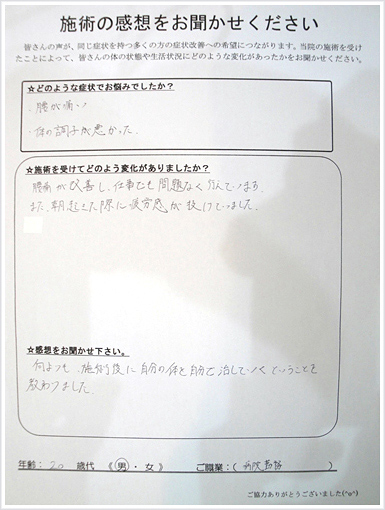 施術の感想をお聞かせください
皆さんの声が、同じ症状を持つ多くの方の症状改善への希望につながります。当院の施術を受け
たことによって、皆さんの体の状態や生活状況にどのような変化があったかをお聞かせください。
☆どのような症状でお悩みでしたか?
・腰が痛い
・体の調子が悪かった。
☆施術を受けてどのよう変化がありましたか?
腰痛が改善し、仕事でも問題なく行えています。
また、朝起きた際に疲労感が抜けていました。
☆感想をお聞かせ下さい。
何よりも、施術後に自分の体を自分で治していくということを
教わりました。
年齢: 20 歳代 《 男 ・ 女 》 ご職業:( 病院勤務 )
ご協力ありがとうございました(^o^)